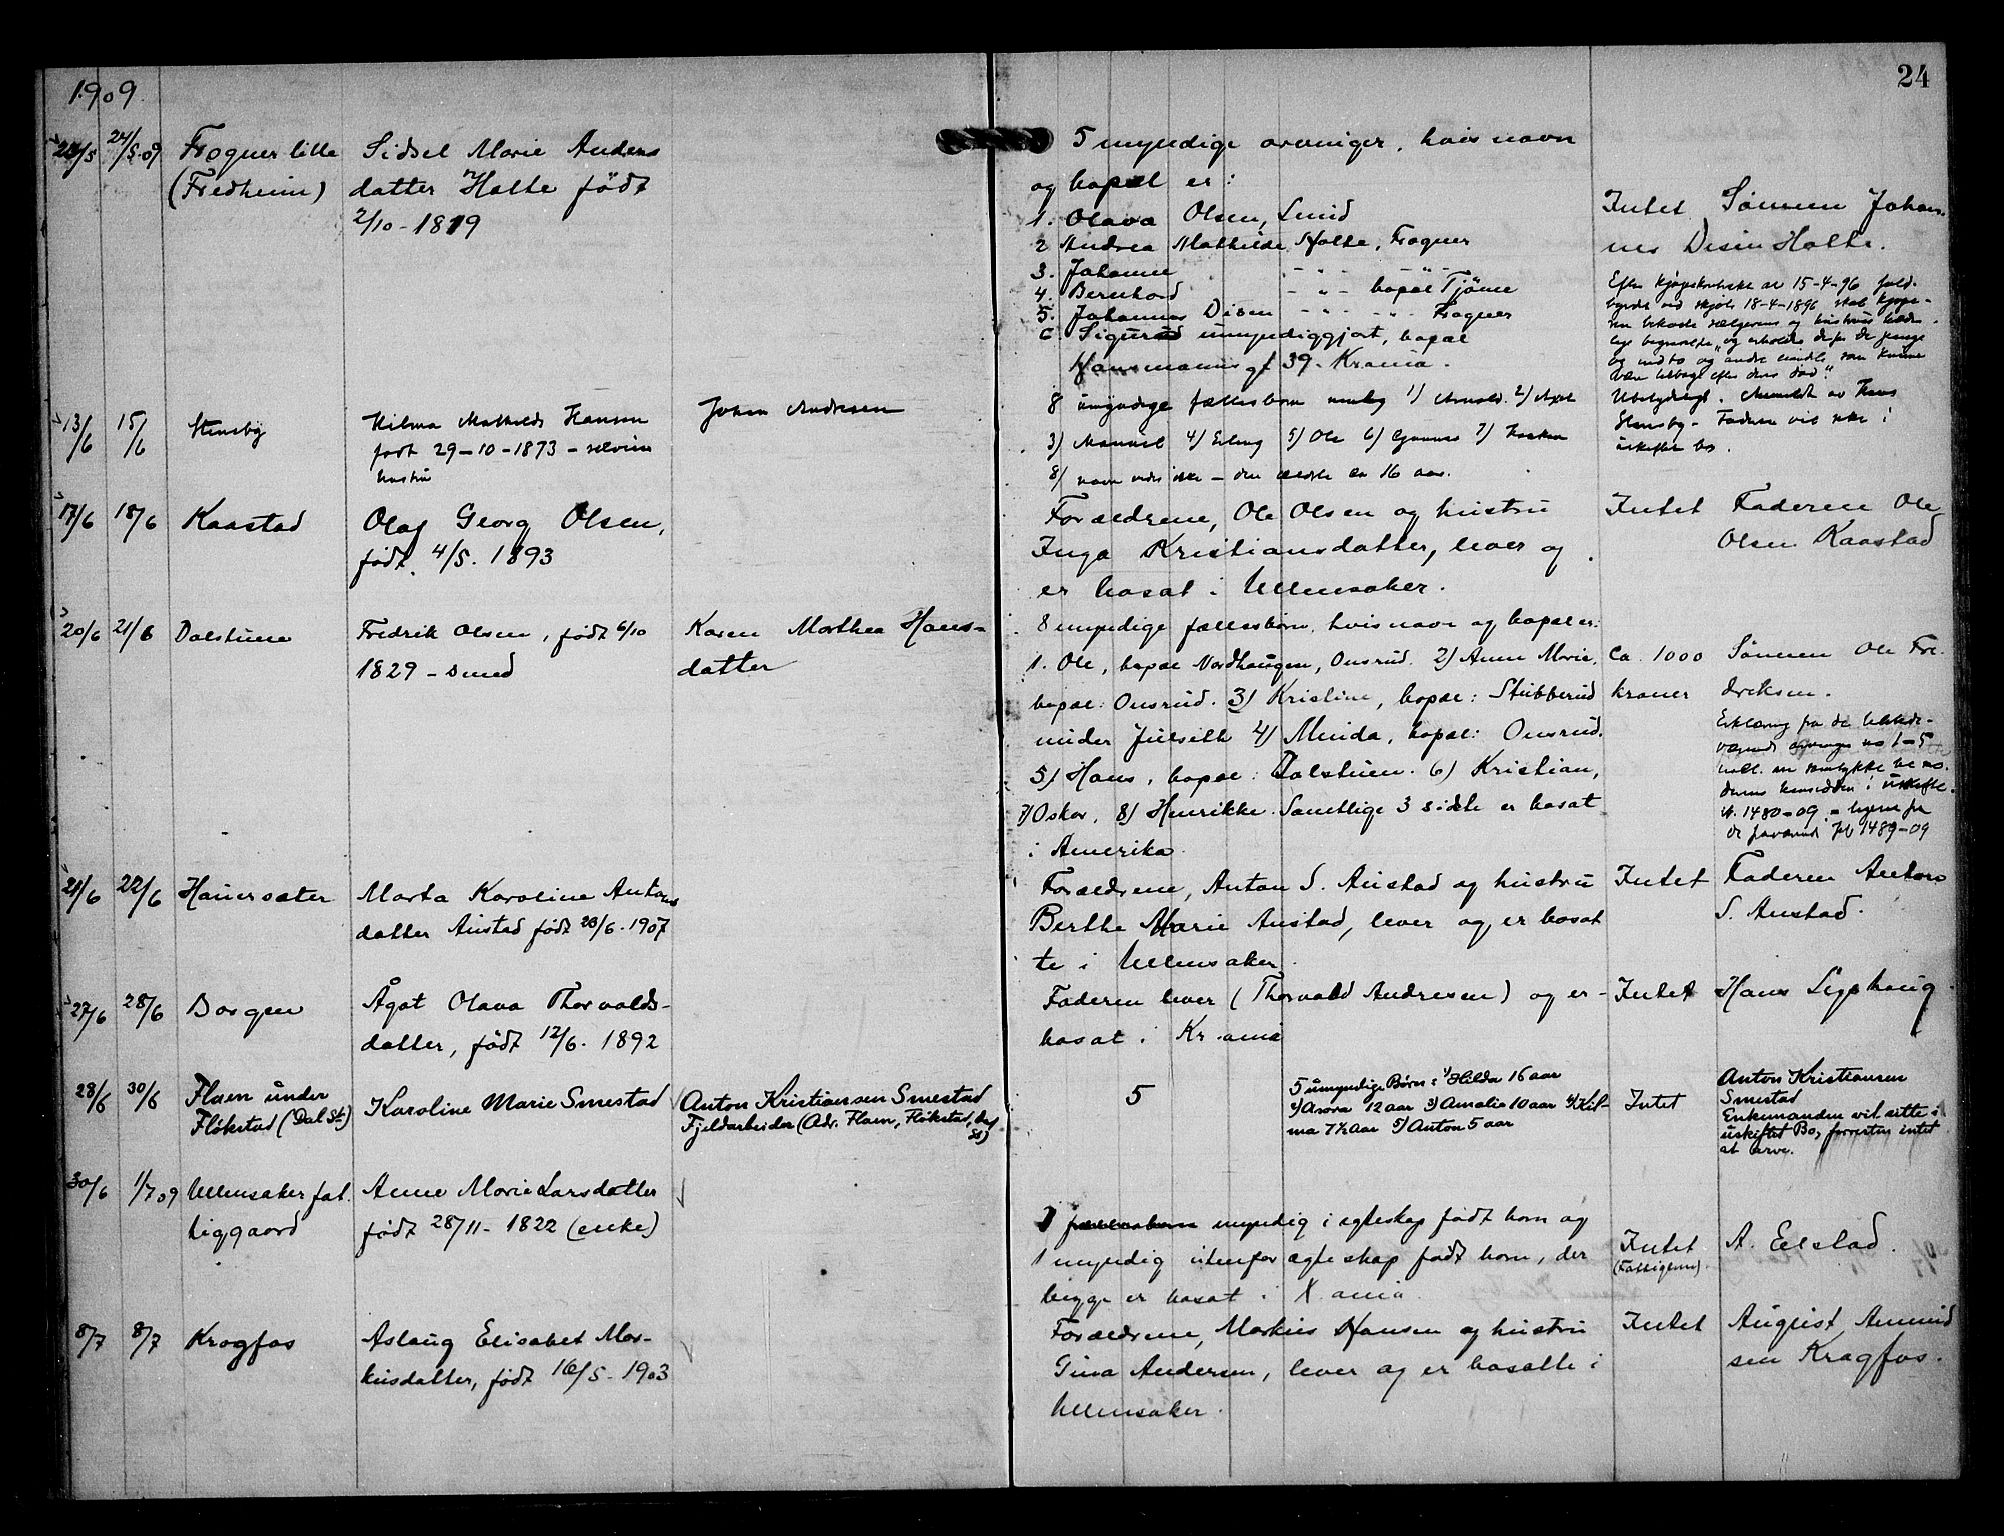 1909
24
24/5 24/5.09 Frogner lille Sidsel Marie Anders
(Fredheim) datter Holte født
2/10 - 1819
5 myndige arvinger, hvis navn
og bopæl er:
1. Olava Olsen, Lund
2 Andrea Mathilde Holte, Frogner
3. Johanne - " - - " -
4. Bernhard - " - bopæl Tjöme
5. Johannes Disen - " - - " - Frogner
6. Sigurd umyndiggjort, bopæl
Hansmannsgt 39. Krania.
Intet Sønnen Johan-
nes Disen Holte.
Efter kjøpekontrakt av 15-4-96
skjøte 18-4-1896 skal kjøpe-
ren bekoste sælgerens og hustrus
og andre som kunne
være tilbage efter deres død."
13/6 15/6 Stensby Hilma Mathilde Hansen
født 29-10-1873 -
hustru
Johan Andresen
8 umyndige fællesbørn nemlig 1) Arnold 2) Axel
3) Manuel 4) Erling 5) Ole 6) Gunnar 7) Haakon
8) navn vides ikke - den ældste ca 16 aar.
Ubetydeligt. Anmeldt av Hans
Stensby - Faderen vil sitte i
uskiftet bo.
17/6 18/6 Kaastad Olaf Georg Olsen,
født 4/5. 1893
Forældrene, Ole Olsen og hustru
Inga Kristiansdatter, lever og
er bosat i Ullensaker.
Intet Faderen Ole
Olsen Kaastad
20/6 21/6 Dalstuen Fredrik Olsen, født 6/10
1829 - smed
Karen Marthea Hans-
datter
8 myndige fællesbørn, hvis navn og bopæl er:
1. Ole, bopæl Nordhaugen, Onsrud. 2) Anne Marie,
bopæl: Onsrud. 3) Kristine, bopæl: Stubberud
under Julsett 4) Minda, bopæl: Onsrud.
5) Hans, bopæl: Dalstuen. 6) Kristian,
7) Oskar, 8) Henrikke. Samtlige 3 sidste er bosat
i Amerika.
Ca. 1000 Sønnen Ole Fre-
kroner driksen.
Erklæring fra de tilstede-
værende arvinger no 1-5
om samtykke til mo-
derens hensidden i uskifte.
1480-09 - ligesaa fra
de fraværende Jb 1489-09
21/6 22/6 Hauersæter Marta Karoline Antons
datter Austad født 23/6. 1907
Forældrene, Anton S. Austad og hustru
Berthe Marie Austad, lever og er bosat
te i Ullensaker.
Intet Faderen Anton
S. Austad.
27/6 28/6 Borgen Ågot Olava Thorvalds-
datter, født 12/6. 1892
Faderen lever (Thorvald Andresen) og er
bosat i Kr.ania
Intet Hans Ligshaug
28/6 30/6 Flaen under Karoline Marie Smestad
Fløkstad (Dal St)
Anton Kristiansen Smestad
Fjeldarbeider (Adr. Flaen, Fløkstad, Dal
St)
5
5 umyndige Børn: 1/ Hilda 16 aar
2/ Arora 12 aar 3/ Amalia 10 aar 4/ Hil-
ma 7½ aar 5/ Anton 5 aar
Intet
Anton Kristiansen
Smestad
Enkemanden vil sitte i
uskiftet Bo, forresten intet
at arve.
30/6 1/7 09 Ullensaker fat. Anne Marie Larsdatter
tiggaard født 28/11 - 1822 (enke)
1 fællesbarn myndig i egteskap født barn og
1 myndig utenfor ægteskap født barn, der
begge er bosat i X.ania.
Intet A. Eelstad.
(Fattiglem).
8/7 8/7 Krogfos Aslaug Elisabet Mar-
kusdatter, født 16/5 - 1903
Forældrene, Markus Hansen og hustru
Gina Andersen, lever og er bosatte i
Ullensaker.
Intet August Amund
sen Kragfos.